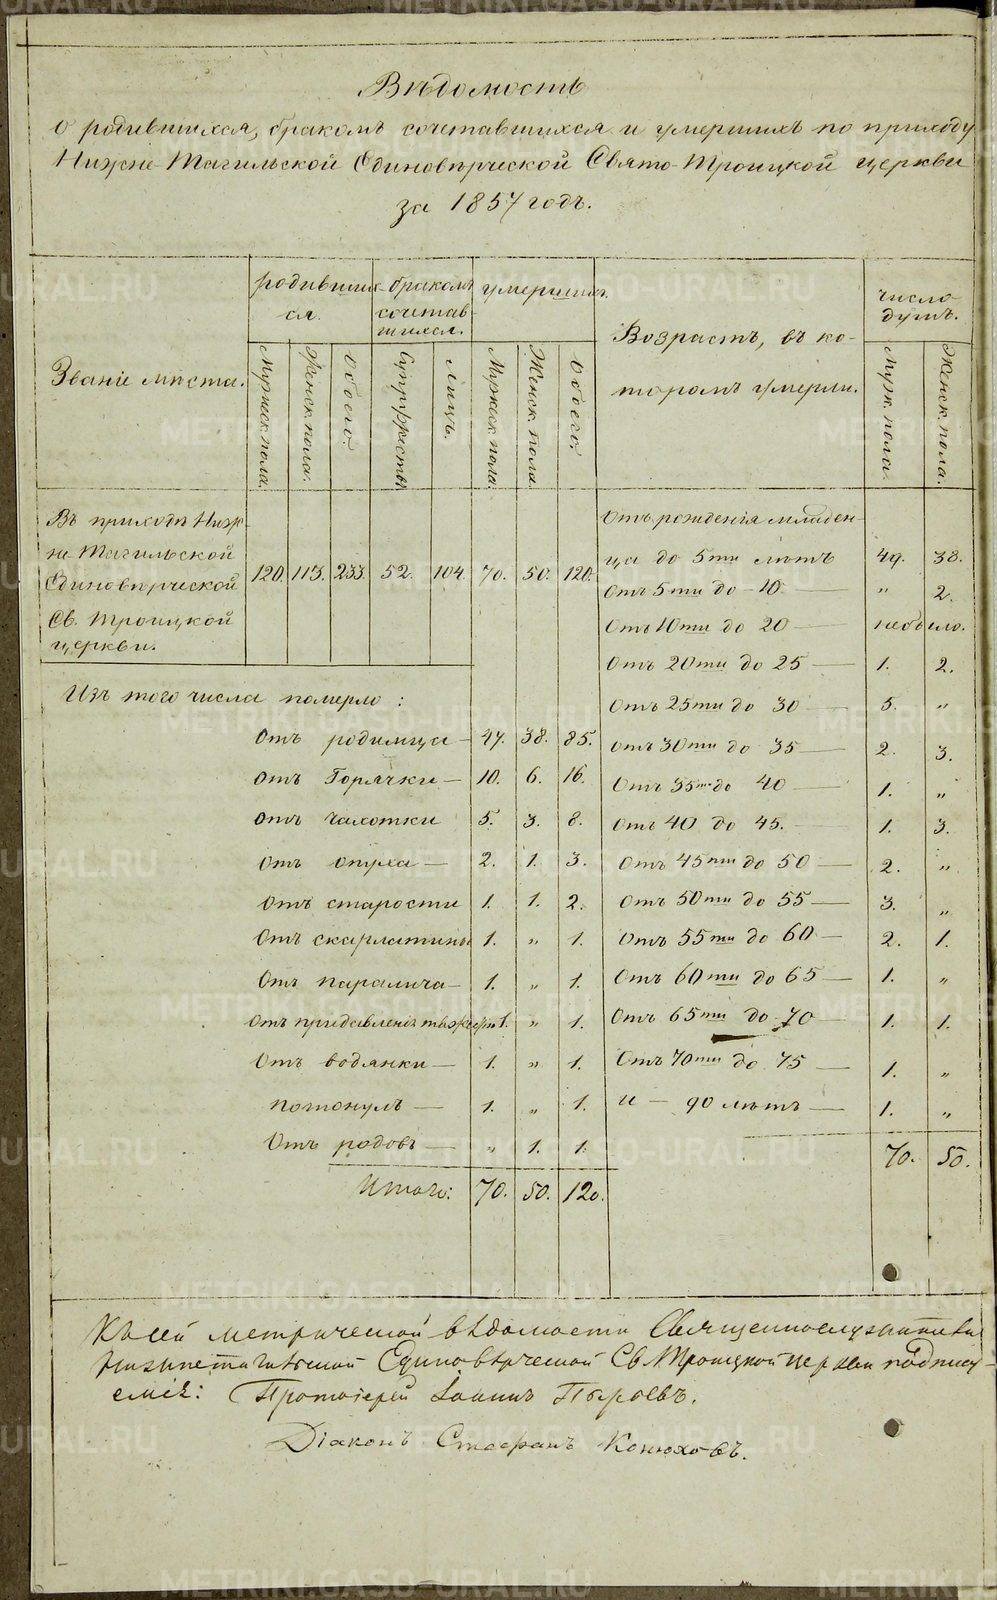 Вѣдомость
о родившихся, бракомъ сочетавшихся и умершихъ по приходу
Нижне-Тагильской Единовѣрческой Свято-Троицкой церкви
за 1857 годъ.
Званіе мѣста.
родивших-
ся.
бракомъ
сочетав-
шихся.
умершихъ.
Возрастъ, въ ко-
торомъ умерли.
число
душъ.
Мужеск. пола.
Женск. пола.
Обоего.
Супружествъ
Лицъ.
Мужеск. пола.
Женск. пола.
Обоего.
Муж. пола.
Женск. пола.
Въ приходѣ Ниж-
не Тагильской
Единовѣрческой
Св. Троицкой
церкви.
120. 113. 233. 52. 104. 70. 50. 120.
Изъ того числа померло:
Отъ родимца — 47. 38. 85.
Отъ Горячки — 10. 6. 16.
Отъ чахотки 5. 3. 8.
Отъ опуха — 2. 1. 3.
Отъ старости 1. 1. 2.
Отъ скарлатины 1. „ 1.
Отъ паралича — 1. „ 1.
Отъ придавленія 1. „ 1.
Отъ водянки — 1. „ 1.
потонулъ — 1. „ 1.
Отъ родовъ — „ 1. 1.
Итого: 70. 50. 120.
Отъ рожденія младен-
ца до 5ти лѣтъ 49. 38.
Отъ 5ти до 10. — „ 2.
Отъ 10ти до 20 — небыло.
Отъ 20ти до 25 — 1. 2.
Отъ 25ти до 30 — 5. „
Отъ 30ти до 35 — 2. 3.
Отъ 35ти до 40 — 1. „
Отъ 40 до 45. — 1. 3.
Отъ 45ти до 50 — 2. „
Отъ 50ти до 55 — 3. „
Отъ 55ти до 60 — 2. 1.
Отъ 60ти до 65 — 1. „
Отъ 65ти до 70 — 1. 1.
Отъ 70ти до 75 — 1. „
и — 90 лѣтъ — 1. „
70. 50.
Къ сей метрической вѣдомости Священнослужители
Нижнетагильской Единовѣрческой Св. Троицкой церкви подпису-
емся: Протоіерей Іоаннъ Пыроевъ.
Діаконъ Стефанъ Конюховъ.
METRIKI.GASO-URAL.RU